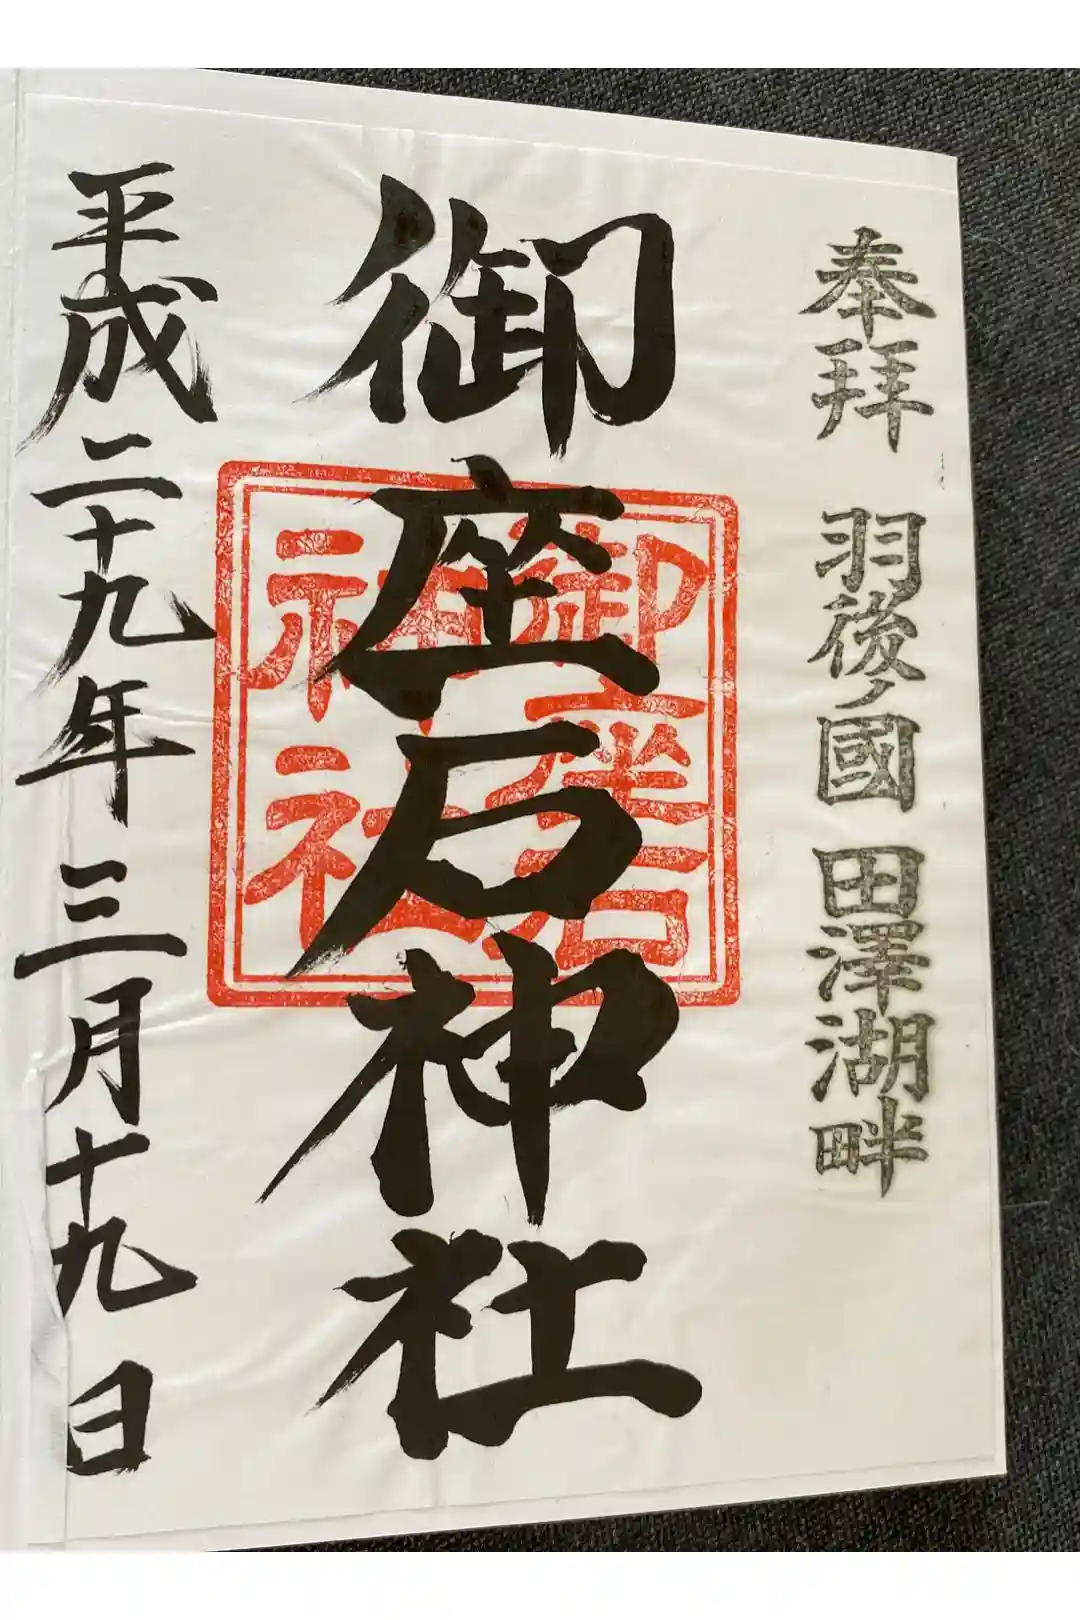 奉拝 羽後ノ國 田澤湖畔
御座石神社
御座石神社
平成二十九年 三月十九日